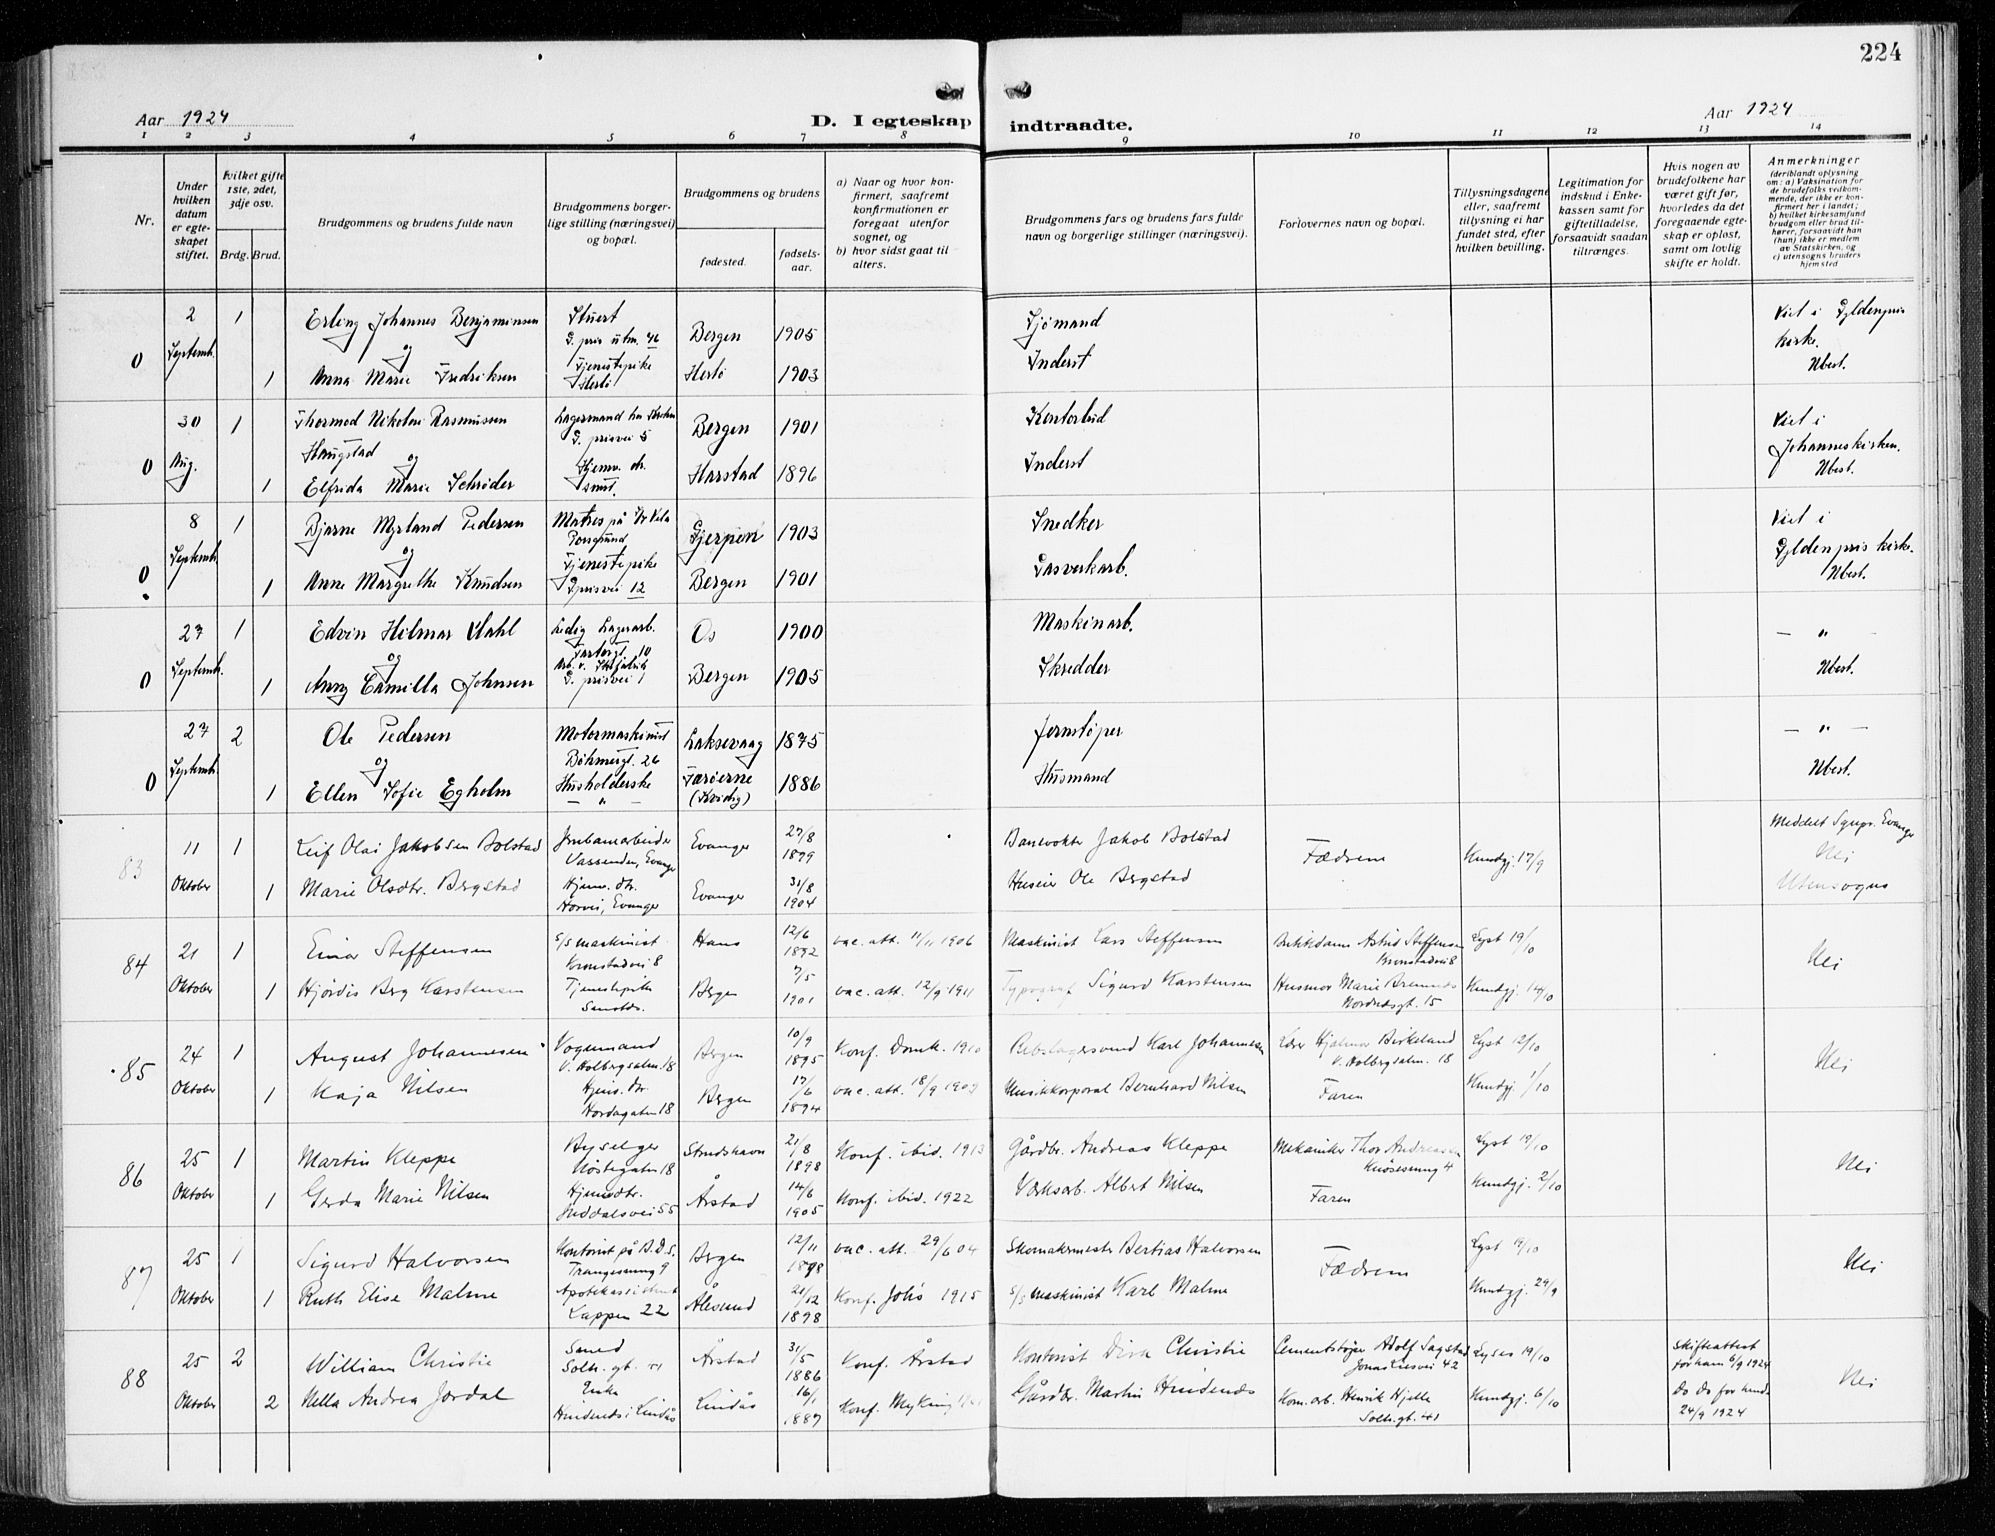 224
Aar 1924
D. I egteskap indtraadte.
Aar 1924
1 2 3 4 5 6 7 8 9 10 11 12 13 14
Nr.
Under hvilken datum er egteskapet stiftet.
Hvilket gifte 1ste, 2det, 3dje osv.
Brdg. Brud.
Brudgommens og brudens fulde navn
Brudgommens borgerlige stilling (næringsvei) og bopæl.
Brudgommens og brudens
fødested.
fødselsaar.
a) Naar og hvor konfirmert, saafremt konfirmationen er foregaat utenfor sognet, og
b) hvor sidst gaat til alters.
Brudgommens fars og brudens fars fulde navn og borgerlige stillinger (næringsvei).
Forlovernes navn og bopæl.
Tillysningsdagene eller, saafremt tillysning ei har fundet sted, efter hvilken bevilling.
Legitimation for indskud i Enkekassen samt for giftetilladelse, forsaavidt saadan tiltrænges.
Hvis nogen av brudefolkene har været gift før, hvorledes da det foregaaende egteskap er opløst, samt om lovlig skifte er holdt.
Anmerkninger
(deriblandt oplysning om: a) Vaksination for de brudefolks vedkommende, der ikke er konfirmert her i landet; b) hvilket kirkesamfund brudgom eller brud tilhører, forsaavidt han (hun) ikke er medlem av Statskirken, og c) utensogns bruders hjemsted
0 2 Septemb. 1 Erling Johannes Benjaminsen Stuert G. pris utm. 46 Bergen 1905 Sjømand Viet i Gyldenpris kirke.
og
1 Anna Marie Fredriksen Tjenestepike Herlø Herlø 1903 Inderst Ubest.
0 30 Aug. 1 Thormod Nikolai Rasmussen Haugstad Lagermand G. prisvei 5 Bergen 1901 Kontorbud Viet i Johanneskirken.
og
1 Elfrida Marie Schrøder Hjemv. dr. Harstad 1896 Inderst Ubest.
0 8 Septemb. 1 Bjarne Myrland Pedersen Matros på Porsgrund Gjerpen 1903 Snedker Viet i Gyldenpris kirke.
og
1 Anne Margrethe Knudsen Tjenestepike G prisvei 12 Bergen 1901 Gasverkarb. Ubest.
0 27 Septemb. 1 Edvin Hilmar Dahl Ledig Lagerarb. Os 1900 Maskinarb. — " —
og
1 Anny Camilla Johnsen G. prisvei 1 Bergen 1905 Skredder Ubest.
0 27 Septemb. 2 Ole Pedersen Motormaskinist Bøhmergt. 26 Laksevaag 1875 Jernstøper — " —
og
1 Ellen Sofie Egholm Husholderske — " — Færøerne 1886 Husmand Ubest.
83 11 Oktober 1 Leif Olai Jakobsen Bolstad Jernbanearbeider Vassenden, Evanger Evanger 27/8 1899 Banevokter Jakob Bolstad Fædrene Kundgj. 17/9 Meddelt Sognepr. Evanger Nei
1 Marie Olsdtr. Bergstad Hjemv. dtr. Horvei, Evanger Evanger 31/8 1904 Huseier Ole Bergstad Utensogns
84 21 Oktober 1 Einar Steffensen s/s maskinist Kronstadvei 8 Haus 12/6 1892 vac. att. 11/11 1906 Maskinist Lars Steffensen Butikdame Astrid Steffensen Kronstadvei 8 Lyst 19/10 Nei
1 Hjørdis Berg Karstensen Tjenestepike Bergen 7/5 1901 vac. att. 12/9 1911 Typograf Sigurd Karstensen Husmor Marie Bremnes Nordnesgt. 15 Kundgj. 14/10
85 24 Oktober 1 August Johannesen Vognmand V. Holbergsalm. 18 Bergen 10/9 1895 Konf. Domk. 1910 Rebslagersvend Karl Johannesen Lærer Hjalmar Birkeland V. Holbergsalm. 18 Lyst 12/10 Nei
1 Kaja Nilsen Hjem. dtr. Hordagaten 18 Bergen 17/6 1894 vac. att. 18/9 1907 Musikkorporal Bernhard Nilsen Faren Kundgj. 1/10
86 25 Oktober 1 Martin Kleppe Bysælger Nøstegaten 18 Strudshavn 21/8 1898 Konf. ibid. 1913 Gårdbr. Andreas Kleppe Mekaniker Thor Andreassen Knøsesmug 4 Lyst 19/10 Nei
1 Gerda Marie Nilsen Hjemmedtr. 55 Årstad 14/6 1905 Konf. ibid. 1922 Værksarb. Albert Nilsen Faren Kundgj. 2/10
87 25 Oktober 1 Sigurd Halvorsen Kontorist på B.D.S. Trangesmug 9 Bergen 12/11 1898 vac. att. 29/6 04 Skomakermester Bertias Halvorsen Fædrene Lyst 19/10 Nei
1 Ruth Elise Malme Apotekassistent Lappen 22 Ålesund 21/12 1898 Konf. Johs 1915 s/s maskinist Karl Malme Kundgj. 29/9
88 25 Oktober 2 William Christie Smed Solh. gt. 41 Årstad 31/5 1886 Konf. Årstad Kontorist Christie Cementstøper Adolf Sagstad Jonas Liesvei 42 Lyses 19/10 Skifteattest for ham 6/9 1924 Nei
2 Nella Andrea Jordal Enke Hundenes i Lindås Lindås 16/1 1887 Konf. Myking Gårdbr. Martin Hundenes Kom. arb. Henrik Hjelle Solh. gt. 41 Kundgj. 6/10 Do Do for hende 24/9 1924